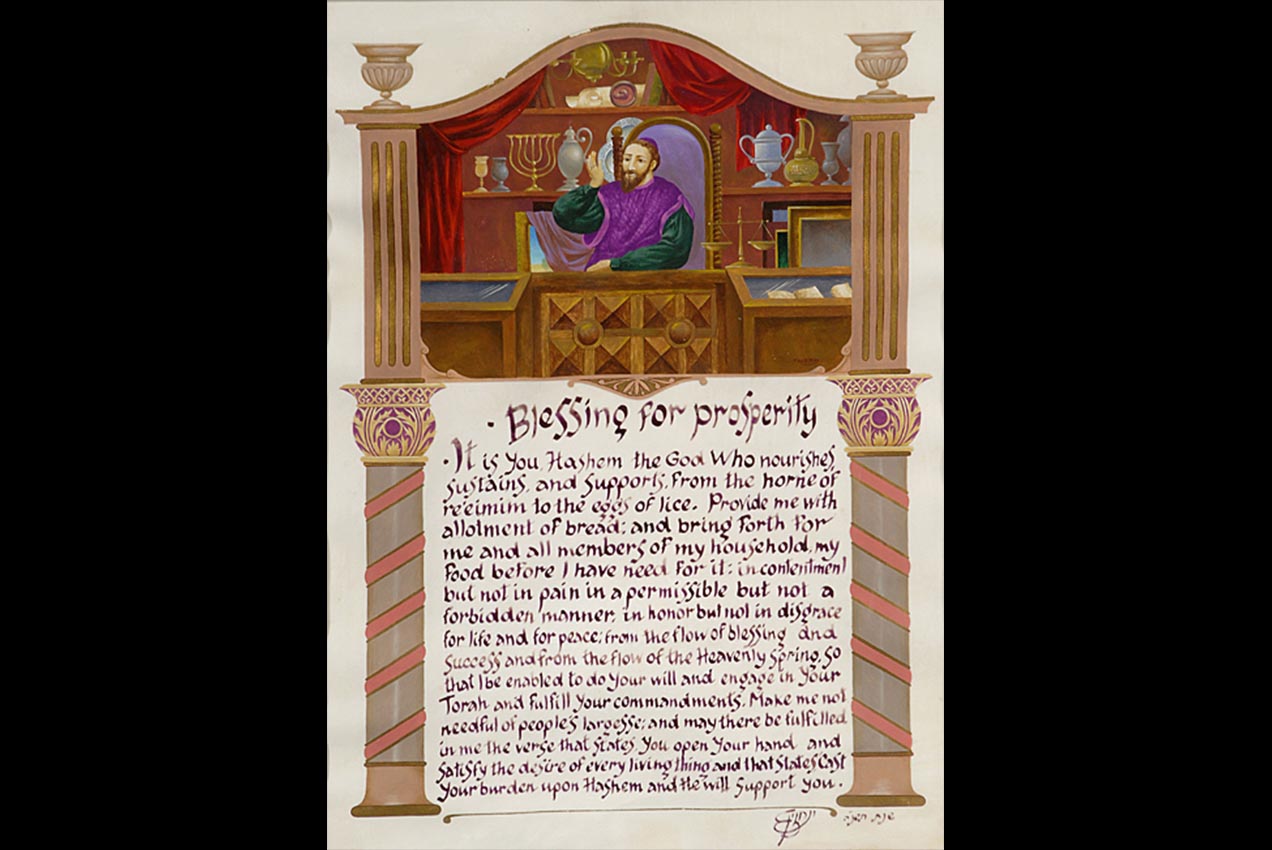 · Blessing for prosperity
· It is You, Hashem the God Who nourishes,
sustains, and supports, from the horne of
re'eimim to the eggs of lice. Provide me with
allotment of bread; and bring forth for
me and all members of my household, my
food before I have need for it; in contentment
but not in pain in a permissible but not a
forbidden manner; in honor but not in disgrace
for life and for peace; from the flow of blessing and
success and from the flow of the Heavenly Spring, so
that I be enabled to do Your will and engage in Your
Torah and fulfill Your commandments. Make me not
needful of peoples largesse; and may there be fulfilled
in me the verse that states, You open Your hand and
satisfy the desire of every living thing and that states Cast
Your burden upon Hashem and He will support you.